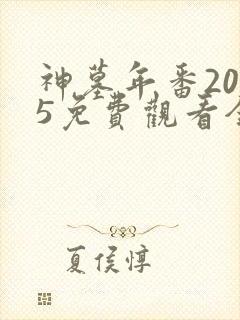 神墓年番20
5免費觀看全
夏侯惇